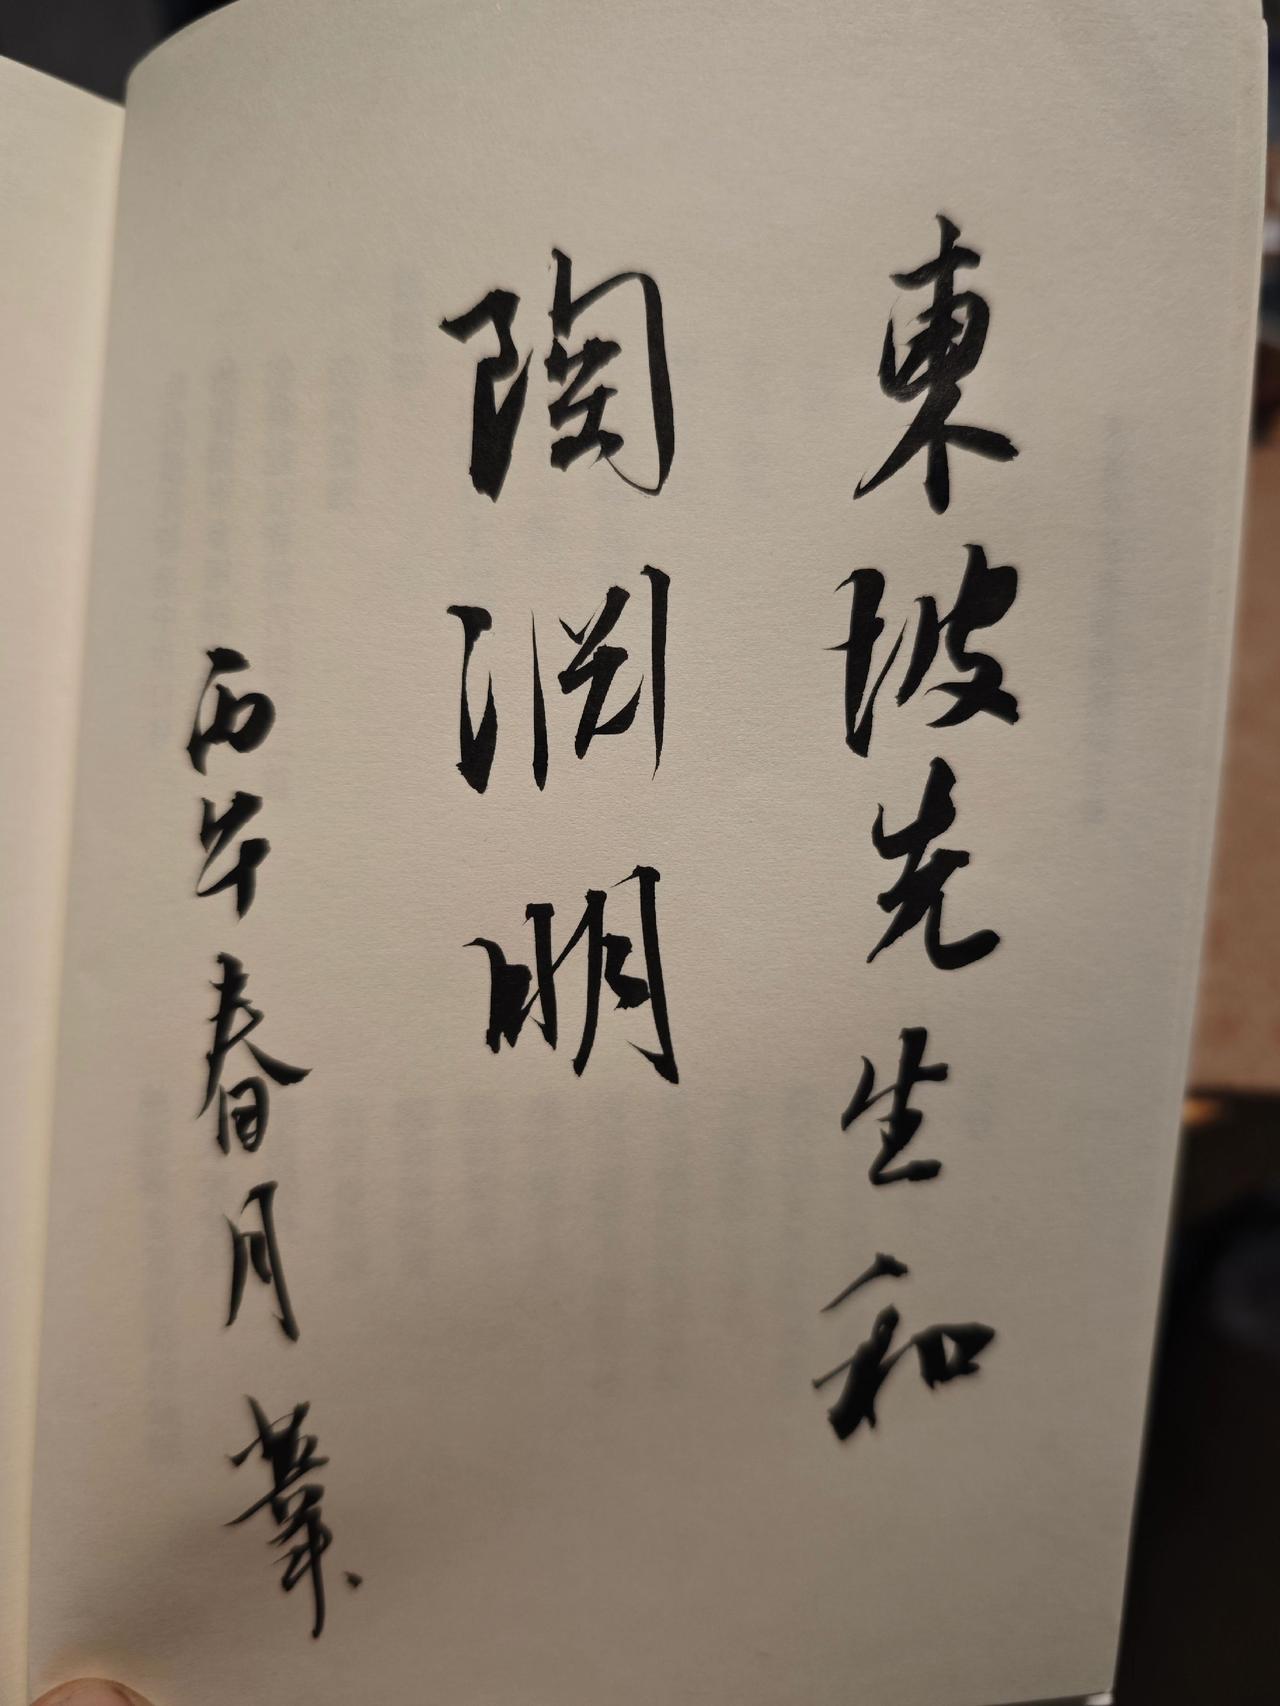 東坡先生和
陶渊明
丙午春月